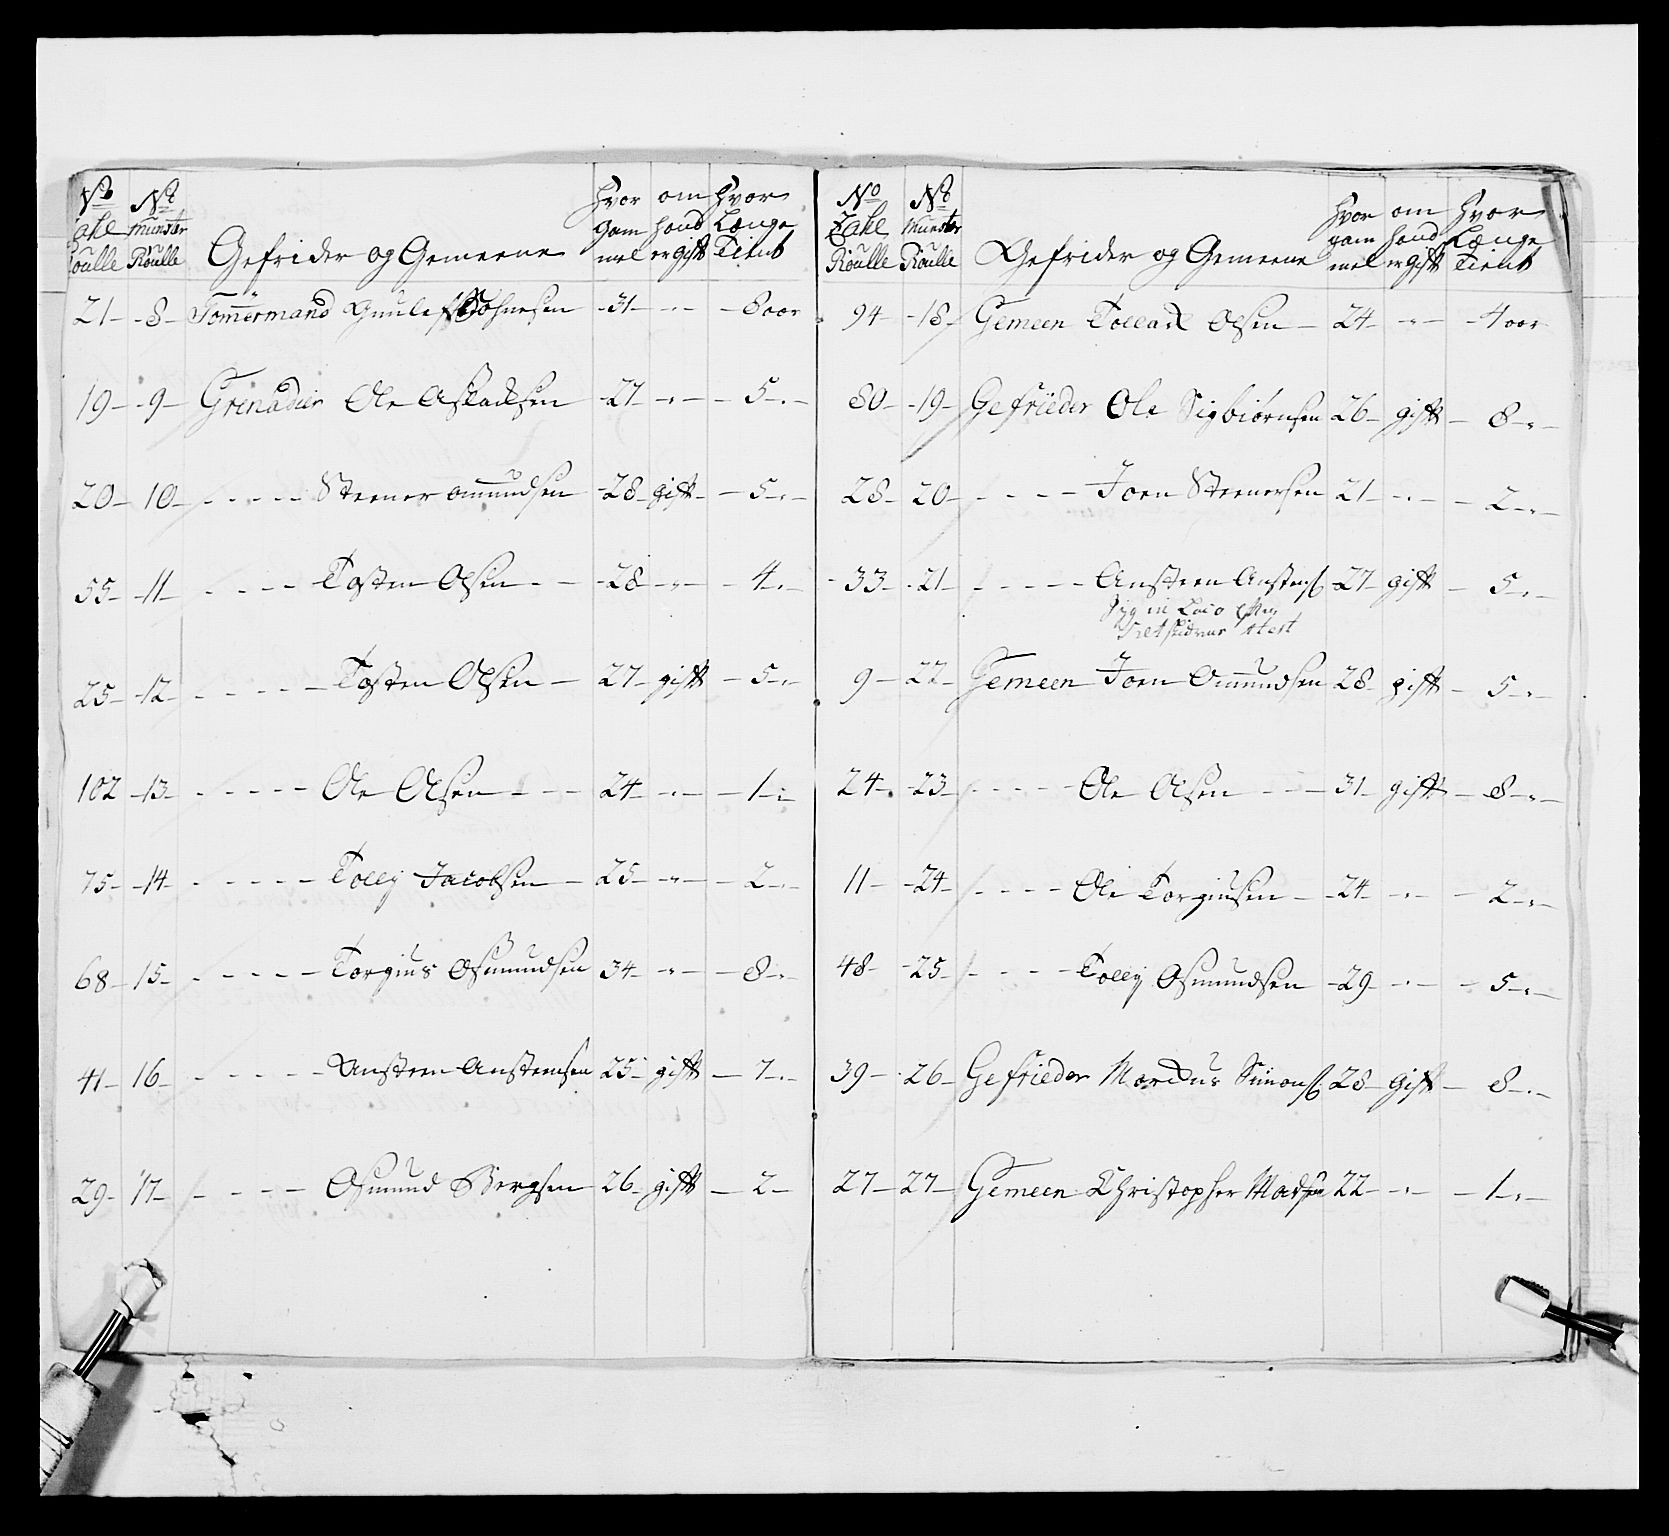 No Zahl Roulle No Munster Roulle Gefrider og Gemeene Hvor gammel om hand er gift Hvor Længe Tient
21 - 8 - Tömmermand Gunlef Johnsen - 31 - " - 8 aar
19 - 9 - Grenadier Ole Aslacksen - 27 - " - 5 - " -
20 - 10 - - - - - Steener Amundsen - 28 - gift - 5 - " -
55 - 11 - - - - - Tosten Olsen - 28 - " - 4 - " -
25 - 12 - - - - - Tosten Olsen - 27 - gift - 5 - " -
102 - 13 - - - - - Ole Olsen - 24 - " - 1 - " -
75 - 14 - - - - - Tolly Jacobsen - 25 - " - 2 - " -
68 - 15 - - - - - Torgius Osmundsen 34 - " - 8 - " -
41 - 16 - - - - - Ansteen Ansteensen 25 - gift - 7 - " -
29 - 17 - - - - - Osmund Bergsen - 26 - gift - 2 -
No Zahl Roulle No Munster Roulle Gefrider og Gemeene Hvor gammel om hand er gift Hvor Længe Tient
94 - 18 - Gemeen Tollack Olsen - 24 - " - 4 aar
80 - 19 - Gefrieder Ole Sigbiørnsen 26 - gift - 8 - " -
28 - 20 - - - - - Joen Steenersen 21 - " - 2 - " -
33 - 21 - - - - - Ansteen Anstens: 27 - gift - 5 - " -
Syg in Loco efter
9 - 22 - Gemeen Joen Amundsen 28 - gift - 5 - " -
24 - 23 - - - - - Ole Olsen - 31 - gift - 8 - " -
11 - 24 - - - - - Ole Torgiusen - 24 - " - 2 - " -
48 - 25 - - - - - Tolly Osmundsen - 29 - " - 5 - " -
39 - 26 - Gefrieder Marckus Simons: 28 - gift - 8 - " -
27 - 27 - Gemeen Christopher Madsen 22 - " - 1 - " -